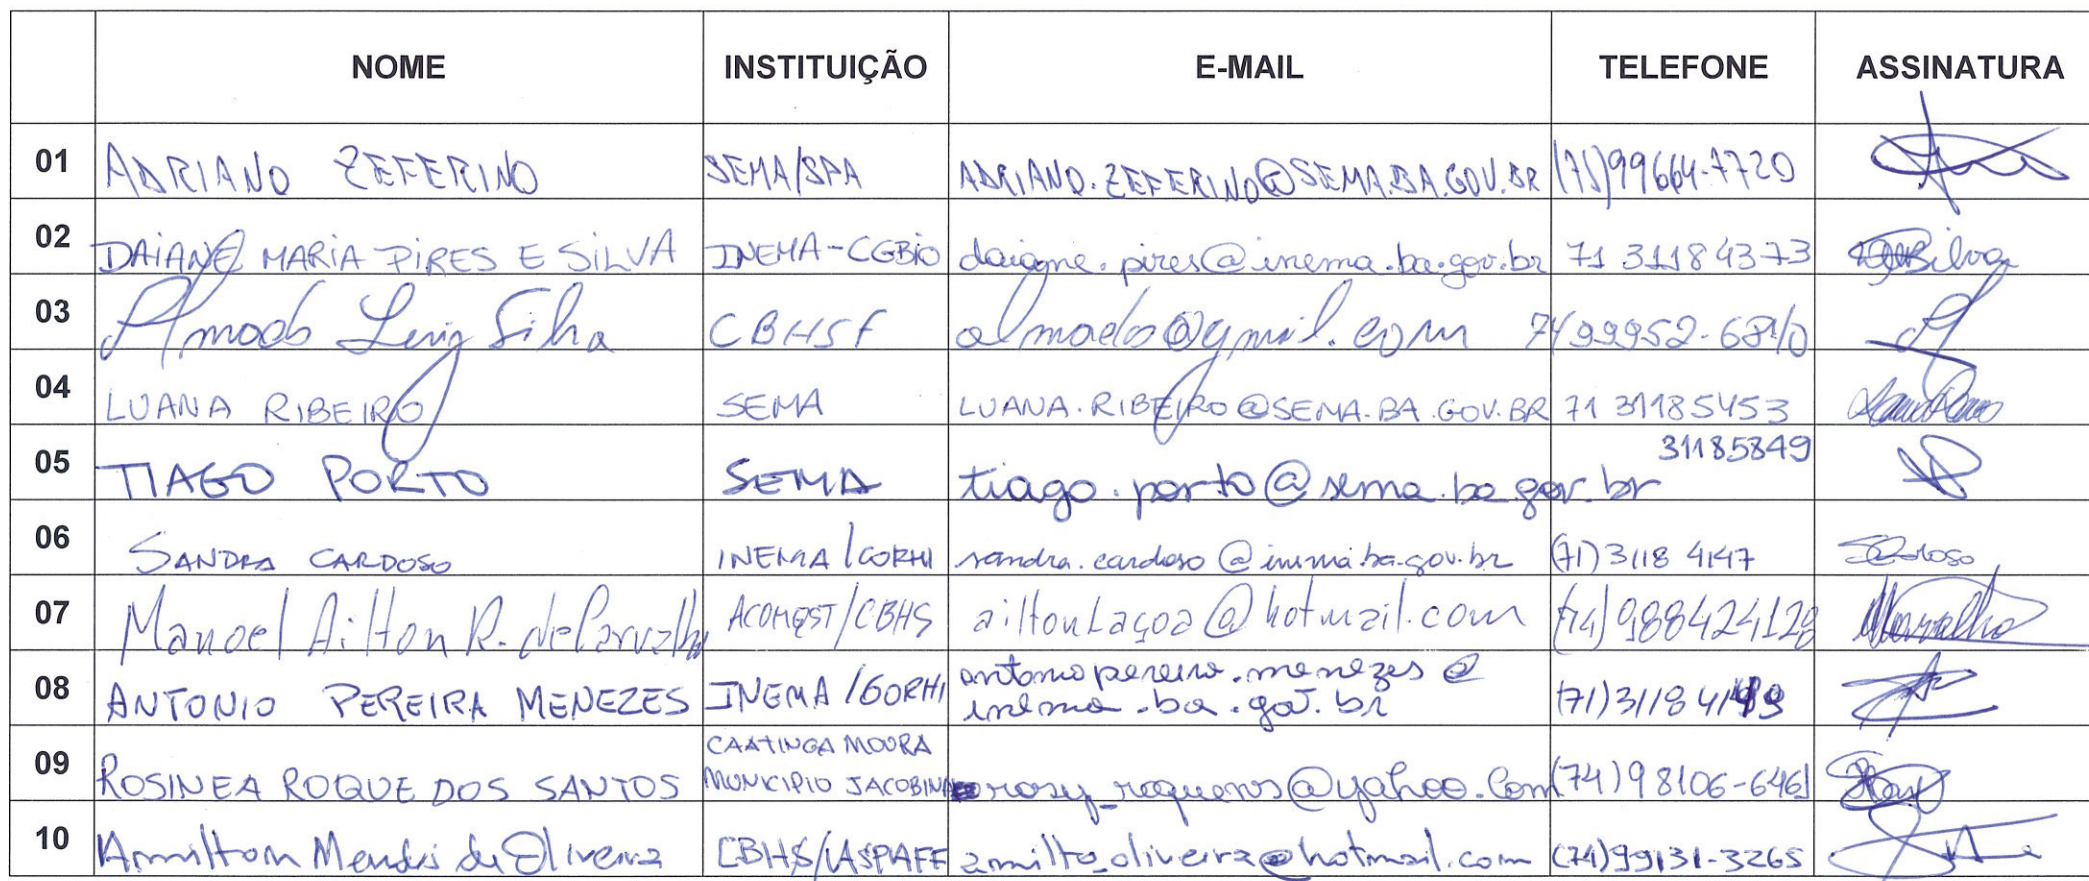 NOME INSTITUIÇÃO E-MAIL TELEFONE ASSINATURA
01 ADRIANO ZEFERINO SEMA/SPA ADRIANO.ZEFERINO@SEMA.BA.GOV.BR (71)99664-7720
02 DAIANE MARIA PIRES E SILVA INEMA-CGBIO daiane.pires@inema.ba.gov.br 71 31184373
03 Almacks Luiz Silva CBHSF @gmail.com
04 LUANA RIBEIRO SEMA LUANA.RIBEIRO@SEMA.BA.GOV.BR 71 31185453
05 TIAGO PORTO SEMA tiago.porto@sema.ba.gov.br 31185849
06 SANDRA CARDOSO INEMA/CORHI sandra.cardoso@inema.ba.gov.br (71)3118 4147
07 Manoel Ailton R. de Carvalho /CBHS ailtonlagoa@hotmail.com (74)988424128
08 ANTONIO PEREIRA MENEZES INEMA/GORHI antonio pereira.menezes@
inema.ba.gov.br
09 ROSINEA ROQUE DOS SANTOS CAATINGA MOURA
MUNICIPIO JACOBINA @yahoo.com (74)98106-6461
10 Amilton Mendes de Oliveira CBHS/ASPAFF amilto_oliveira@hotmail.com (74)99131-3265